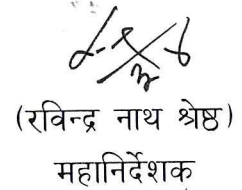 (रविन्द्र नाथ श्रेष्ठ)
महानिर्देशक